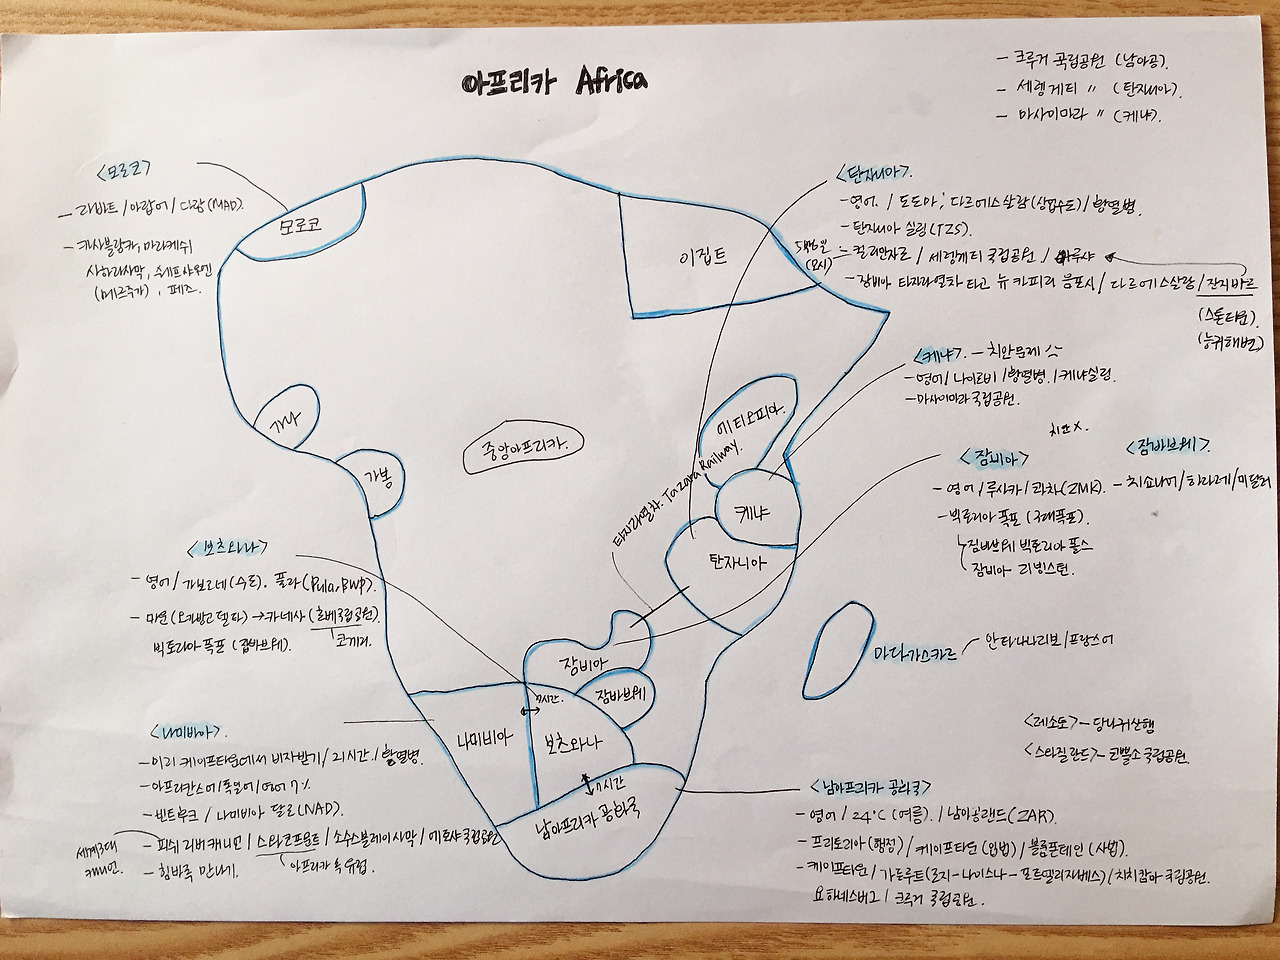 아프리카 Africa
- 크루거 국립공원 (남아공).
- 세렝게티 〃 (탄자니아).
- 마사이마라 〃 (케냐).
<모로코>
- 라바트 / 아랍어 / 디람 (MAD).
- 카사블랑카, 마라케쉬
사하라사막, 쉐프샤우엔
(메르주가), 페스.
모로코
이집트
가나
가봉
중앙아프리카.
에티오피아.
케냐
탄자니아
타자라열차. Tazara Railway.
잠비아
잠바브웨
나미비아
보츠와나
7시간.
7시간
남아프리카 공화국
<탄자니아>.
- 영어. / 도도마, 다르에스살람(상업수도) / 황열병.
- 탄자니아 실링(TZS).
5박6일
(모시)
- 킬리만자로 / 세렝게티 국립공원 / 아루샤
- 잠비아 타자라열차 타고 뉴카피리 음포시 / 다르에스살람 / 잔지바르
(스톤타운).
(능귀해변)
<케냐>. - 치안문제
- 영어 / 나이로비 / 황열병. / 케냐실링.
- 마사이마라 국립공원.
치안 X.
<잠비아>
- 영어 / 루사카 / 콰차(ZMK).
- 빅토리아 폭포 (3대폭포).
짐바브웨 빅토리아 폴스
잠비아 리빙스턴.
<잠바브웨>
- 치쇼나어 / 하라레 / 미달러
<보츠와나>
- 영어 / 가보로네(수도). 풀라(Pula, BWP).
- 마운 (오카방고 델타) → 카네사 (초베국립공원).
코끼리.
빅토리아 폭포 (잠바브웨).
마다가스카르
안타나나리보 / 프랑스어
<나미비아>.
- 미리 케이프타운에서 비자받기 / 21시간 / 황열병.
- 아프리칸스어 / 독일어 / 영어 7%
- 빈트후크 / 나미비아 달러(NAD).
세계3대
캐니언.
- 피쉬 리버 캐니언 / 스와코프문트 / 소수스블레이사막 / 에토샤 국립공원
아프리카 속 유럽.
- 힘바족 만나기.
<레소토> - 당나귀산행
<스와질란드> - 로블소 국립공원.
<남아프리카 공화국>
- 영어 / 24℃ (여름). / 남아공랜드(ZAR).
- 프리토리아 (행정) / 케이프타운 (입법) / 블룸폰테인 (사법).
- 케이프타운 / 가든루트 (조지-나이스나-포트엘리자베스) / 치치캄마 국립공원.
요하네스버그 / 크루거 국립공원.